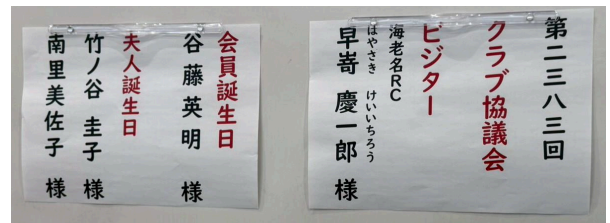 第二三八三回
クラブ協議会
ビジター
海老名RC
はやさき けいいちろう
早嵜 慶一郎 様
会員誕生日
谷藤英明 様
夫人誕生日
竹ノ谷 圭子 様
南里美佐子 様